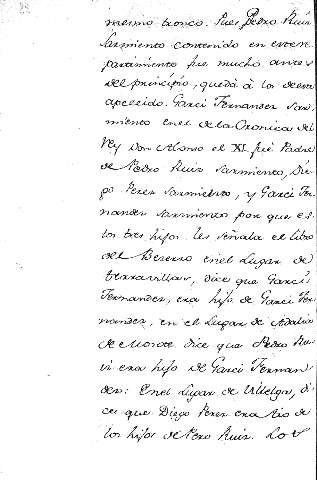 mesmo tronco. Pues Pedro Ruiz
Sarmiento contenido en este re
partimiento fue mucho antes
del principio, queda à los de este
apellido. Garci Fernandez Sar
miento en el de la Cronica del
Rey Don Alonso el XI fué Padre
de Pedro Ruiz Sarmiento, Die
go Perez Sarmiento, y Garci Fer
nandez Sarmiento por que es
tos tres hijos les señala el libro
del Becerro en el Lugar de
dice que Garci
Fernandez, era hijo de Garci Fer
nandez, en el Lugar de
dice que Pedro Ru
iz era hijo de Garci Fernan
dez: En el Lugar de Villelga, di
ce que Diego Perez era tio de
los hijos de Pero Ruiz. Los